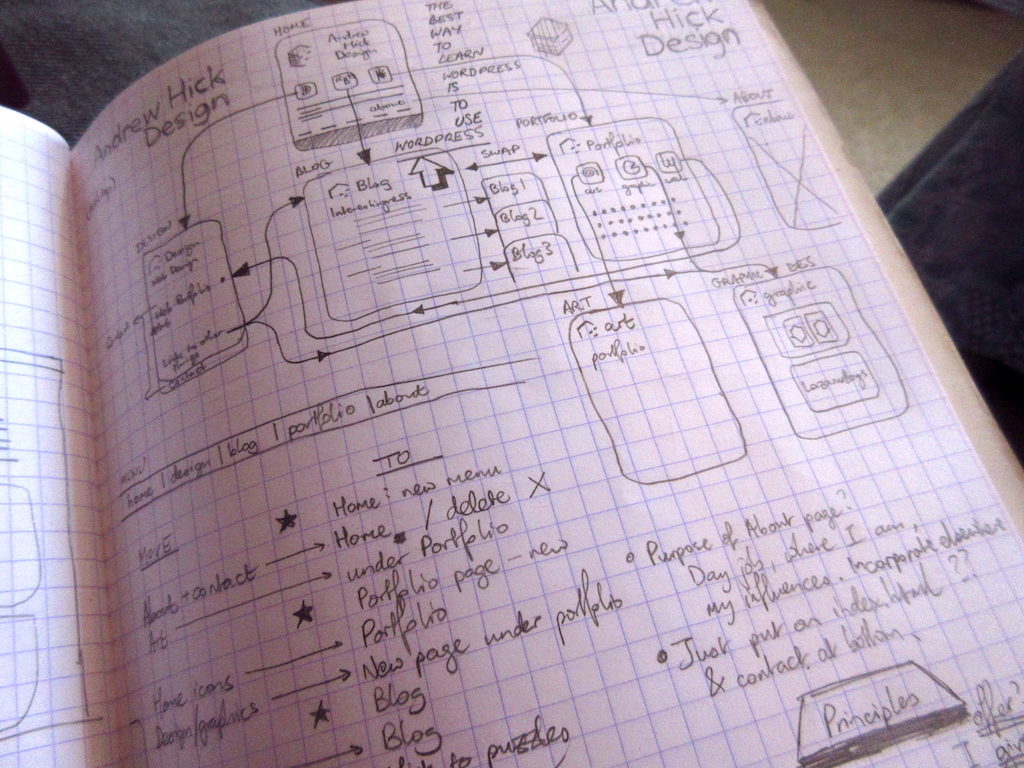 Andrew Hick
Design
HOME
Andrew
Hick
Design
about
THE
BEST
WAY
TO
LEARN
WORDPRESS
IS
TO
USE
WORDPRESS
Hick
Design
ABOUT
BLOG
Blog
Interestingness
SWAP
Blog 1
Blog 2
Blog 3
PORTFOLIO
Portfolio
art
graph
web
DESIGN
Design
Web Design
Web Portfolio
Links to other
ART
art
portfolio
GRAPHIC DES
graphic
MENU
home | design | blog | portfolio | about
MOVE
TO
★ Home: new menu
About + contact → Home / delete X
Art → under Portfolio
★ Portfolio page - new
Home icons → Portfolio
Design/graphics → New page under portfolio
★ Blog
→ Blog
to puzzles
Purpose of About page?
Day job, where I am,
my influences. Incorporate elsewhere
• Just put on index.html ??
& contact at bottom.
Principles
offer?
I